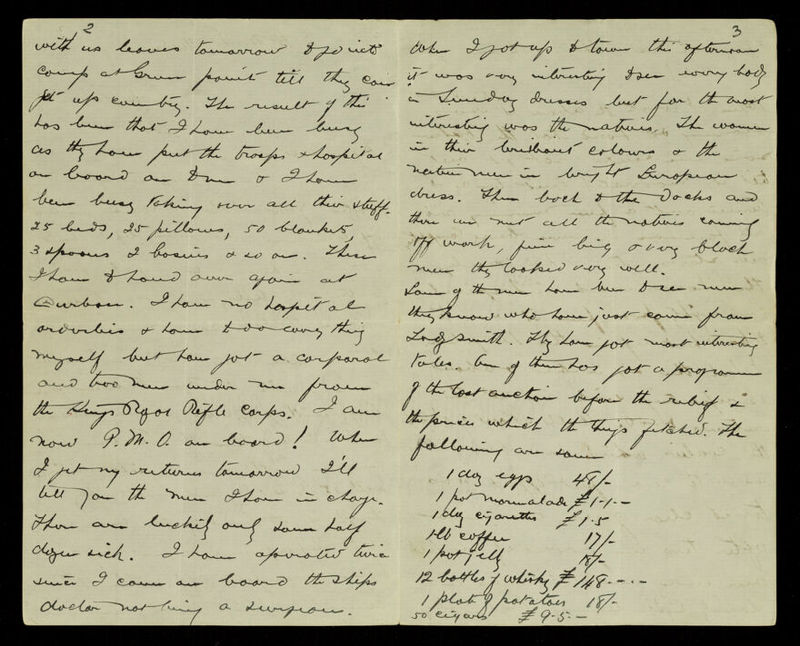 2
with us leaves tomorrow & joints
camp at Green point till they can
get up country. The result of this
has been that I have been busy
as they have put the troops & hospital
on board an Dun & I have
been busy taking over all their stuff.
25 beds, 25 pillows, 50 blankets,
3 spoons 2 basins & so on. These
I have to hand over again at
Durban. I have no hospital
orderlies & have to do everything
myself but have got a corporal
and two men under me from
the Kings Royal Rifle Corps. I am
now P.M.O. on board! When
I get my returns tomorrow I'll
tell you the men I have in charge.
There are luckily only some half
dozen sick. I have operated twice
since I came on board the ships
doctor not being a surgeon.
3
When I got up to town this afternoon
it was very interesting to see every body
in Sunday dresses but far the most
interesting was the natives. The women
in their brilliant colours & the
native men in bright European
dress. Then back to the Docks and
there we met all the natives coming
off work, fine big & very black
men they looked very well.
Some of the men have been to see men
they know who have just come from
Ladysmith. They have got most interesting
tales. One of them has got a programme
of the last auction before the relief &
the prices which the things fetched. The
following are some
1 doz eggs 48/-
1 pot marmalade £1-1-
1 doz cigarettes £1.5
1 lb coffee 17/-
1 pot jelly 18/-
12 bottles of whisky £148-.-.-
1 plate of potatoes 18/-
50 cigars £9-5-